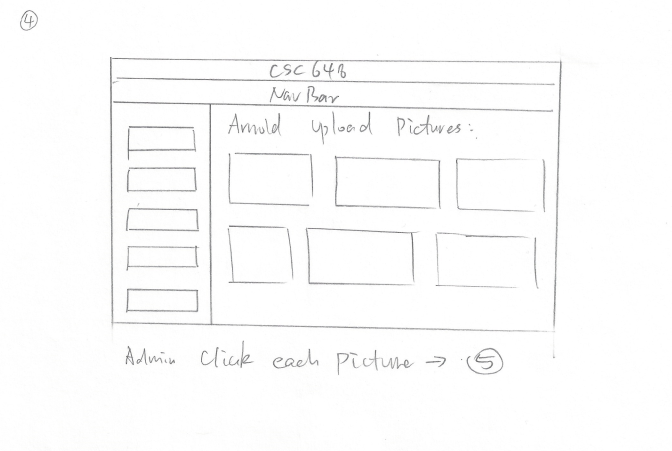 ④
CSC 648
Nav Bar
Arnold upload Pictures:
Admin Click each picture → ⑤